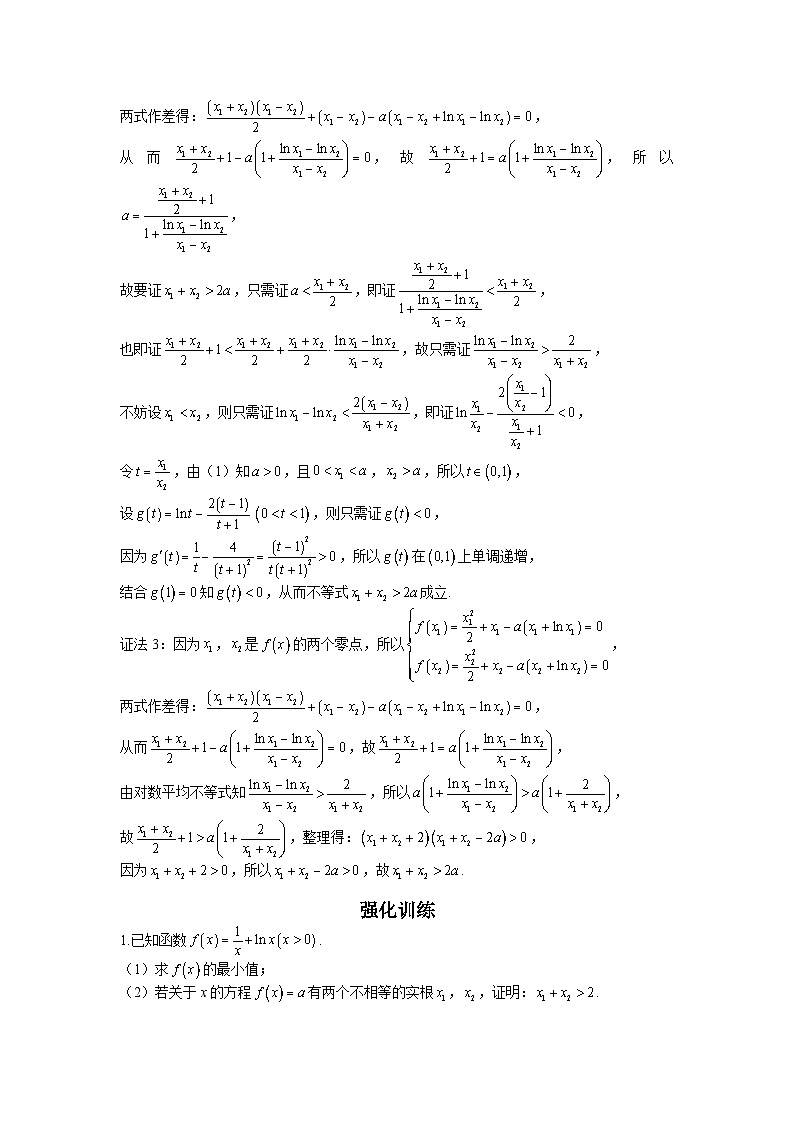 两式作差得：$\frac{(x_1+x_2)(x_1-x_2)}{2}+(x_1-x_2)-a(x_1-x_2+\ln x_1-\ln x_2)=0$，
从而$\frac{x_1+x_2}{2}+1-a\left(1+\frac{\ln x_1-\ln x_2}{x_1-x_2}\right)=0$，故$\frac{x_1+x_2}{2}+1=a\left(1+\frac{\ln x_1-\ln x_2}{x_1-x_2}\right)$，所以
$a=\frac{\frac{x_1+x_2}{2}+1}{1+\frac{\ln x_1-\ln x_2}{x_1-x_2}}$，
故要证$x_1+x_2>2a$，只需证$a<\frac{x_1+x_2}{2}$，即证$\frac{\frac{x_1+x_2}{2}+1}{1+\frac{\ln x_1-\ln x_2}{x_1-x_2}}<\frac{x_1+x_2}{2}$，
也即证$\frac{x_1+x_2}{2}+1<\frac{x_1+x_2}{2}+\frac{x_1+x_2}{2}\cdot\frac{\ln x_1-\ln x_2}{x_1-x_2}$，故只需证$\frac{\ln x_1-\ln x_2}{x_1-x_2}>\frac{2}{x_1+x_2}$，
不妨设$x_1<x_2$，则只需证$\ln x_1-\ln x_2<\frac{2(x_1-x_2)}{x_1+x_2}$，即证$\ln\frac{x_1}{x_2}-\frac{2\left(\frac{x_1}{x_2}-1\right)}{\frac{x_1}{x_2}+1}<0$，
令$t=\frac{x_1}{x_2}$，由（1）知$a>0$，且$0<x_1<a$，$x_2>a$，所以$t\in(0,1)$，
设$g(t)=\ln t-\frac{2(t-1)}{t+1}\ (0<t<1)$，则只需证$g(t)<0$，
因为$g'(t)=\frac{1}{t}-\frac{4}{(t+1)^2}=\frac{(t-1)^2}{t(t+1)^2}>0$，所以$g(t)$在$(0,1)$上单调递增，
结合$g(1)=0$知$g(t)<0$，从而不等式$x_1+x_2>2a$成立.
证法3：因为$x_1$，$x_2$是$f(x)$的两个零点，所以$\begin{cases}f(x_1)=\frac{x_1^2}{2}+x_1-a(x_1+\ln x_1)=0\\f(x_2)=\frac{x_2^2}{2}+x_2-a(x_2+\ln x_2)=0\end{cases}$，
两式作差得：$\frac{(x_1+x_2)(x_1-x_2)}{2}+(x_1-x_2)-a(x_1-x_2+\ln x_1-\ln x_2)=0$，
从而$\frac{x_1+x_2}{2}+1-a\left(1+\frac{\ln x_1-\ln x_2}{x_1-x_2}\right)=0$，故$\frac{x_1+x_2}{2}+1=a\left(1+\frac{\ln x_1-\ln x_2}{x_1-x_2}\right)$，
由对数平均不等式知$\frac{\ln x_1-\ln x_2}{x_1-x_2}>\frac{2}{x_1+x_2}$，所以$a\left(1+\frac{\ln x_1-\ln x_2}{x_1-x_2}\right)>a\left(1+\frac{2}{x_1+x_2}\right)$，
故$\frac{x_1+x_2}{2}+1>a\left(1+\frac{2}{x_1+x_2}\right)$，整理得：$(x_1+x_2+2)(x_1+x_2-2a)>0$，
因为$x_1+x_2+2>0$，所以$x_1+x_2-2a>0$，故$x_1+x_2>2a$.
强化训练
1.已知函数$f(x)=\frac{1}{x}+\ln x(x>0)$.
（1）求$f(x)$的最小值；
（2）若关于x的方程$f(x)=a$有两个不相等的实根$x_1$，$x_2$，证明：$x_1+x_2>2$.